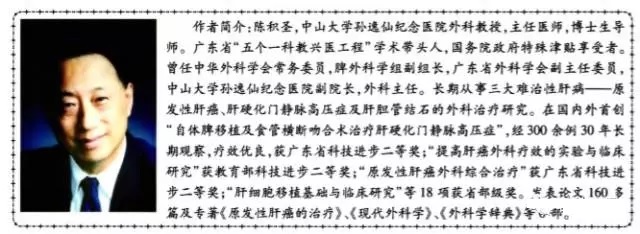 作者简介:陈积圣,中山大学孙逸仙纪念医院外科教授,主任医师,博士生导
师。广东省“五个一科教兴医工程”学术带头人,国务院政府特殊津贴享受者。
曾任中华外科学会常务委员,脾外科学组副组长,广东省外科学会副主任委员,
中山大学孙逸仙纪念医院副院长,外科主任。长期从事三大难治性肝病——原
发性肝癌、肝硬化门静脉高压症及肝胆管结石的外科治疗研究。在国内外首创
“自体脾移植及食管横断吻合术治疗肝硬化门静脉高压症”,经300余例30年长
期观察,疗效优良,获广东省科技进步二等奖;“提高肝癌外科疗效的实验与临床
研究”获教育部科技进步二等奖;“原发性肝癌外科综合治疗”获广东省科技进
步二等奖;“肝细胞移植基础与临床研究”等18项获省部级奖。发表论文160多
篇及专著《原发性肝癌的治疗》、《现代外科学》、《外科学辞典》等 部。